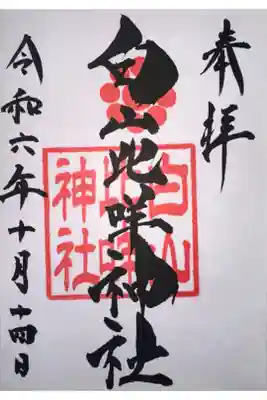 奉拝
白山比咩神社
白山比咩神社
令和六年十月十四日